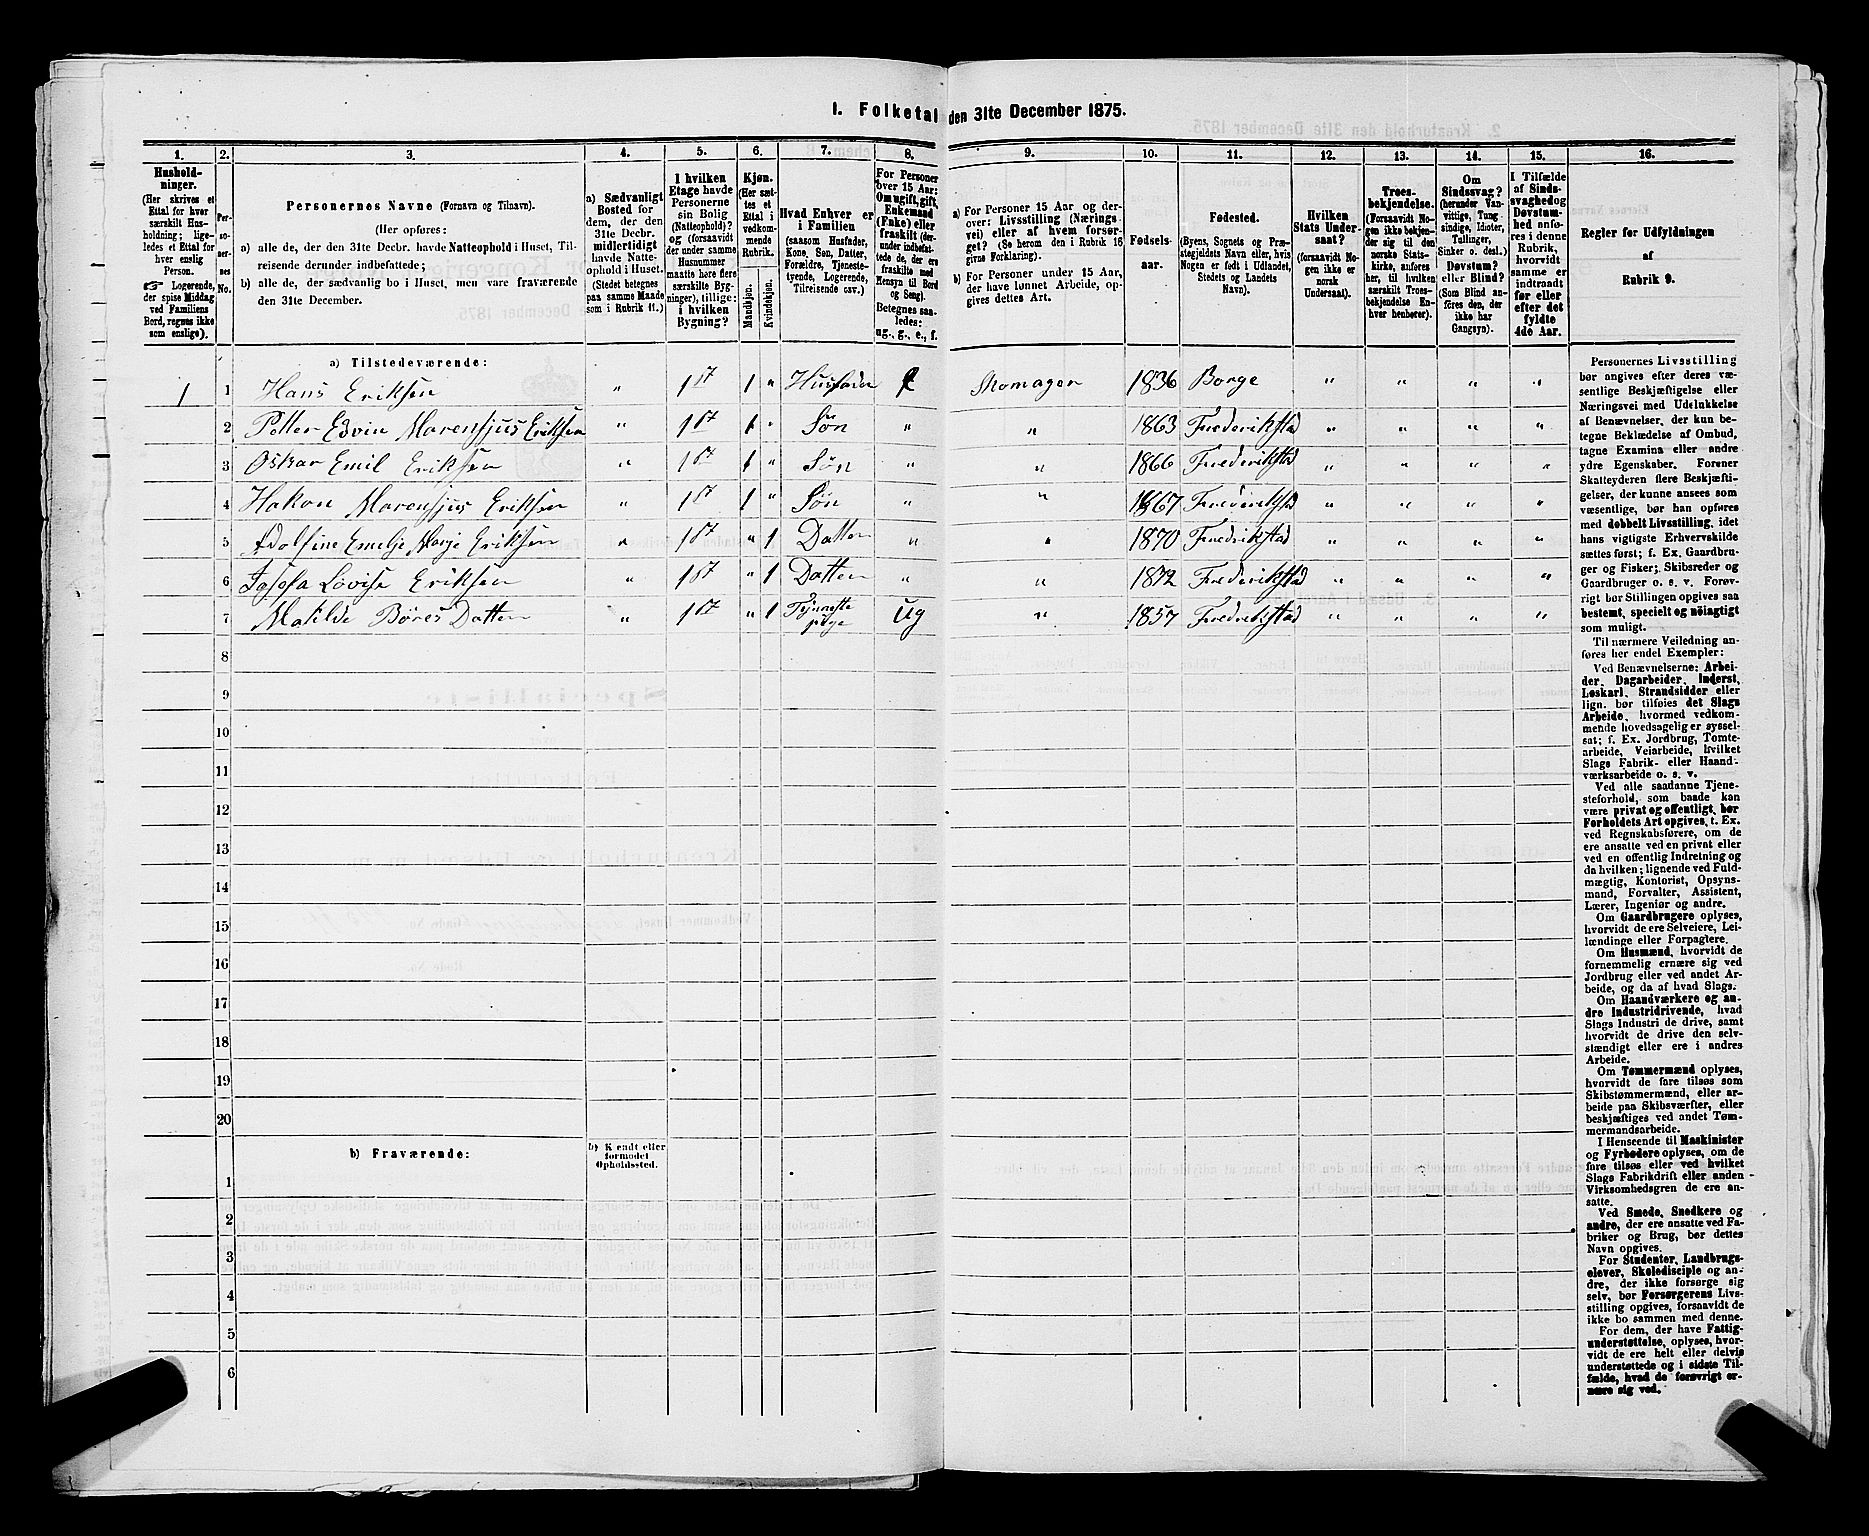 I. Folketal den 31te December 1875.
1. 2. 3. 4. 5. 6. 7. 8. 9. 10. 11. 12. 13. 14. 15. 16.
Husholdninger.
(Her skrives et
Ettal for hver
særskilt Husholdning; ligeledes
et Ettal for
hver enslig
Person.
☞ Logerende,
der spise Middag
ved Familiens
Bord, regnes ikke
som enslige).
Personernes No.
Personernes Navne (Fornavn og Tilnavn).
(Her opføres:
a) alle de, der den 31te Decbr. havde Natteophold i Huset, Tilreisende
derunder indbefattede;
b) alle de, der sædvanlig bo i Huset, men vare fraværende
den 31te December.
a) Sædvanligt
Bosted for
dem, der den
31te Decbr.
midlertidigt
havde Natteophold
i Huset.
(Stedet betegnes
paa samme Maade
som i Rubrik 11.)
I hvilken
Etage havde
Personerne
sin Bolig
(Natteophold)?
og (forsaavidt
der under samme
Husnummer
maatte høre flere
særskilte Bygninger),
tillige:
i hvilken
Bygning?
Kjøn.
(Her sættes
et
Ettal i
vedkommende
Rubrik.
Mandkjøn.
Kvindekjøn.
Hvad Enhver er
i Familien
(saasom Husfader,
Kone, Søn, Datter,
Forældre, Tjenestetyende,
Logerende,
Tilreisende osv.)
For Personer
over 15 Aar:
Om ugift, gift,
Enkemand
(Enke) eller
fraskilt (derunder
indbefattede
de, der ere
fraskilte med
Hensyn til Bord
og Seng).
Betegnes saaledes:
ug., g., e., f.
a) For Personer 15 Aar og derover:
Livsstilling (Næringsvei)
eller af hvem forsørget?
(Se herom den i Rubrik 16
givne Forklaring).
b) For Personer under 15 Aar,
der have lønnet Arbeide, opgives
dettes Art.
Fødselsaar.
Fødested.
(Byens, Sognets og Præstegjeldets
Navn eller, hvis
Nogen er født i Udlandet,
Stedets og Landets
Navn).
Hvilken
Stats Undersaat?
(forsaavidt Nogen
ikke er
norsk
Undersaat).
Troesbekjendelse.
(Forsaavidt Nogen
ikke bekjender
sig til den
norske Statskirke,
anføres
her, til hvilken
særskilt Troesbekjendelse
Enhver
henhører).
Om
Sindssvag?
(herunder Vanvittige,
Tungsindige,
Idioter,
Tullinger,
Sinker o. desl.)
Døvstum?
eller Blind?
(Som Blind anføres
den, der
ikke har
Gangsyn).
I Tilfælde
af Sindssvaghed
og
Døvstumhed
anføres
i denne
Rubrik,
hvorvidt
samme er
indtraadt
før eller
efter det
fyldte
4de Aar.
Regler for Udfyldningen
af
Rubrik 9.
a) Tilstedeværende:
1 1 Hans Eriksen " 1 St 1 " Husfader Skomager 1836 Borge " " " "
2 Petter Edvin Marensjus Eriksen " 1 St 1 " Søn " " 1863 Frederikstad " " " "
3 Oskar Emil Eriksen " 1 St 1 " Søn " " 1866 Frederikstad " " " "
4 Hakon Marensjus Eriksen " 1 St 1 " Søn " " 1867 Frederikstad " " " "
5 Adolfine Emelje Marje Eriksen " 1 St " 1 Datter " " 1870 Fredrikstad " " " "
6 Lovise Eriksen " 1 St " 1 Datter " " 1872 Frederikstad " " " "
7 Matilde Børes Datter " 1 St " 1 Tjeneste pige ug " 1857 Fredrikstad " " " "
8
9
10
11
12
13
14
15
16
17
18
19
20
b) Fraværende:
b) Kjendt eller
formodet
Opholdssted.
1
2
3
4
5
6
Personernes Livsstilling
bør angives efter deres væsentlige
Beskjæftigelse eller
Næringsvei med Udelukkelse
af Benævnelser, der kun betegne
Beklædelse af Ombud,
tagne Examina eller andre
ydre Egenskaber. Forener
Skatteyderen flere Beskjæftigelser,
der kunne ansees som
væsentlige, bør han opføres
med dobbelt Livsstilling, idet
hans vigtigste Erhvervskilde
sættes først; f. Ex. Gaardbruger
og Fisker; Skibsreder og
Gaardbruger o. s. v. Forøvrigt
bør Stillingen opgives saa
bestemt, specielt og nøiagtigt
som muligt.
Til nærmere Veiledning anføres
her endel Exempler:
Ved Benævnelserne: Arbeider,
Dagarbeider, Inderst,
Løskarl, Strandsidder eller
lign. bør tilføies det Slags
Arbeide, hvormed vedkommende
hovedsagelig er sysselsat;
f. Ex. Jordbrug, Tomtearbeide,
Veiarbeide, hvilket
Slags Fabrik- eller Haandværksarbeide
o. s. v.
Ved alle saadanne Tjenesteforhold,
som baade kan
være privat og offentligt, bør
Forholdets Art opgives, t. Ex.
ved Regnskabsførere, om de
ere ansatte ved en privat eller
ved en offentlig Indretning og
da hvilken; lignende ved Fuldmægtig,
Kontorist, Opsynsmand,
Forvalter, Assistent,
Lærer, Ingeniør og andre.
Om Gaardbrugere oplyses,
hvorvidt de ere Selveiere, Leilændinge
eller Forpagtere.
Om Husmænd, hvorvidt de
fornemmelig ernære sig ved
Jordbrug eller ved andet Arbeide,
og da af hvad Slags.
Om Haandværkere og andre
Industridrivende, hvad
Slags Industri de drive, samt
hvorvidt de drive den selvstændigt
eller ere i andres
Arbeide.
Om Tømmermænd oplyses,
hvorvidt de fare tilsøs som
Skibstømmermænd, eller arbeide
paa Skibsværfter, eller
beskjæftiges ved andet Tømmermandsarbeide.
I Henseende til Maskinister
og Fyrbødere oplyses, om de
fare tilsøs eller ved hvilket
Slags Fabrikdrift eller anden
Virksomhedsgren de ere ansatte.
Ved Smede, Snedkere og
andre, der ere ansatte ved Fabriker
og Brug, bør dettes
Navn opgives.
For Studenter, Landbrugselever,
Skoledisciple og andre,
der ikke forsørge sig
selv, bør Forsørgerens Livsstilling
opgives, forsaavidt de
ikke bo sammen med denne.
For dem, der have Fattigunderstøttelse,
oplyses, hvorvidt
de ere helt eller delvis
understøttede og i sidste Tilfælde,
hvad de forøvrigt ernære
sig ved.